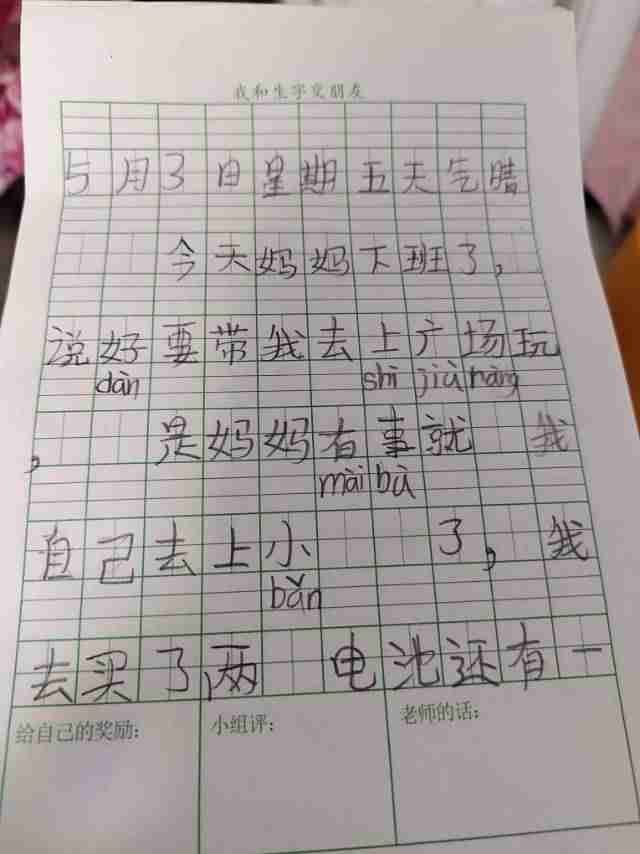 我和生字交朋友
5月3日星期五天气晴
今天妈妈下班了，
说好要带我去上广场玩
dàn shì jiù ràng
，是妈妈有事就 我
mài bù
自己去上小 了，我
bǎn
去买了两 电池还有一
给自己的奖励： 小组评： 老师的话：